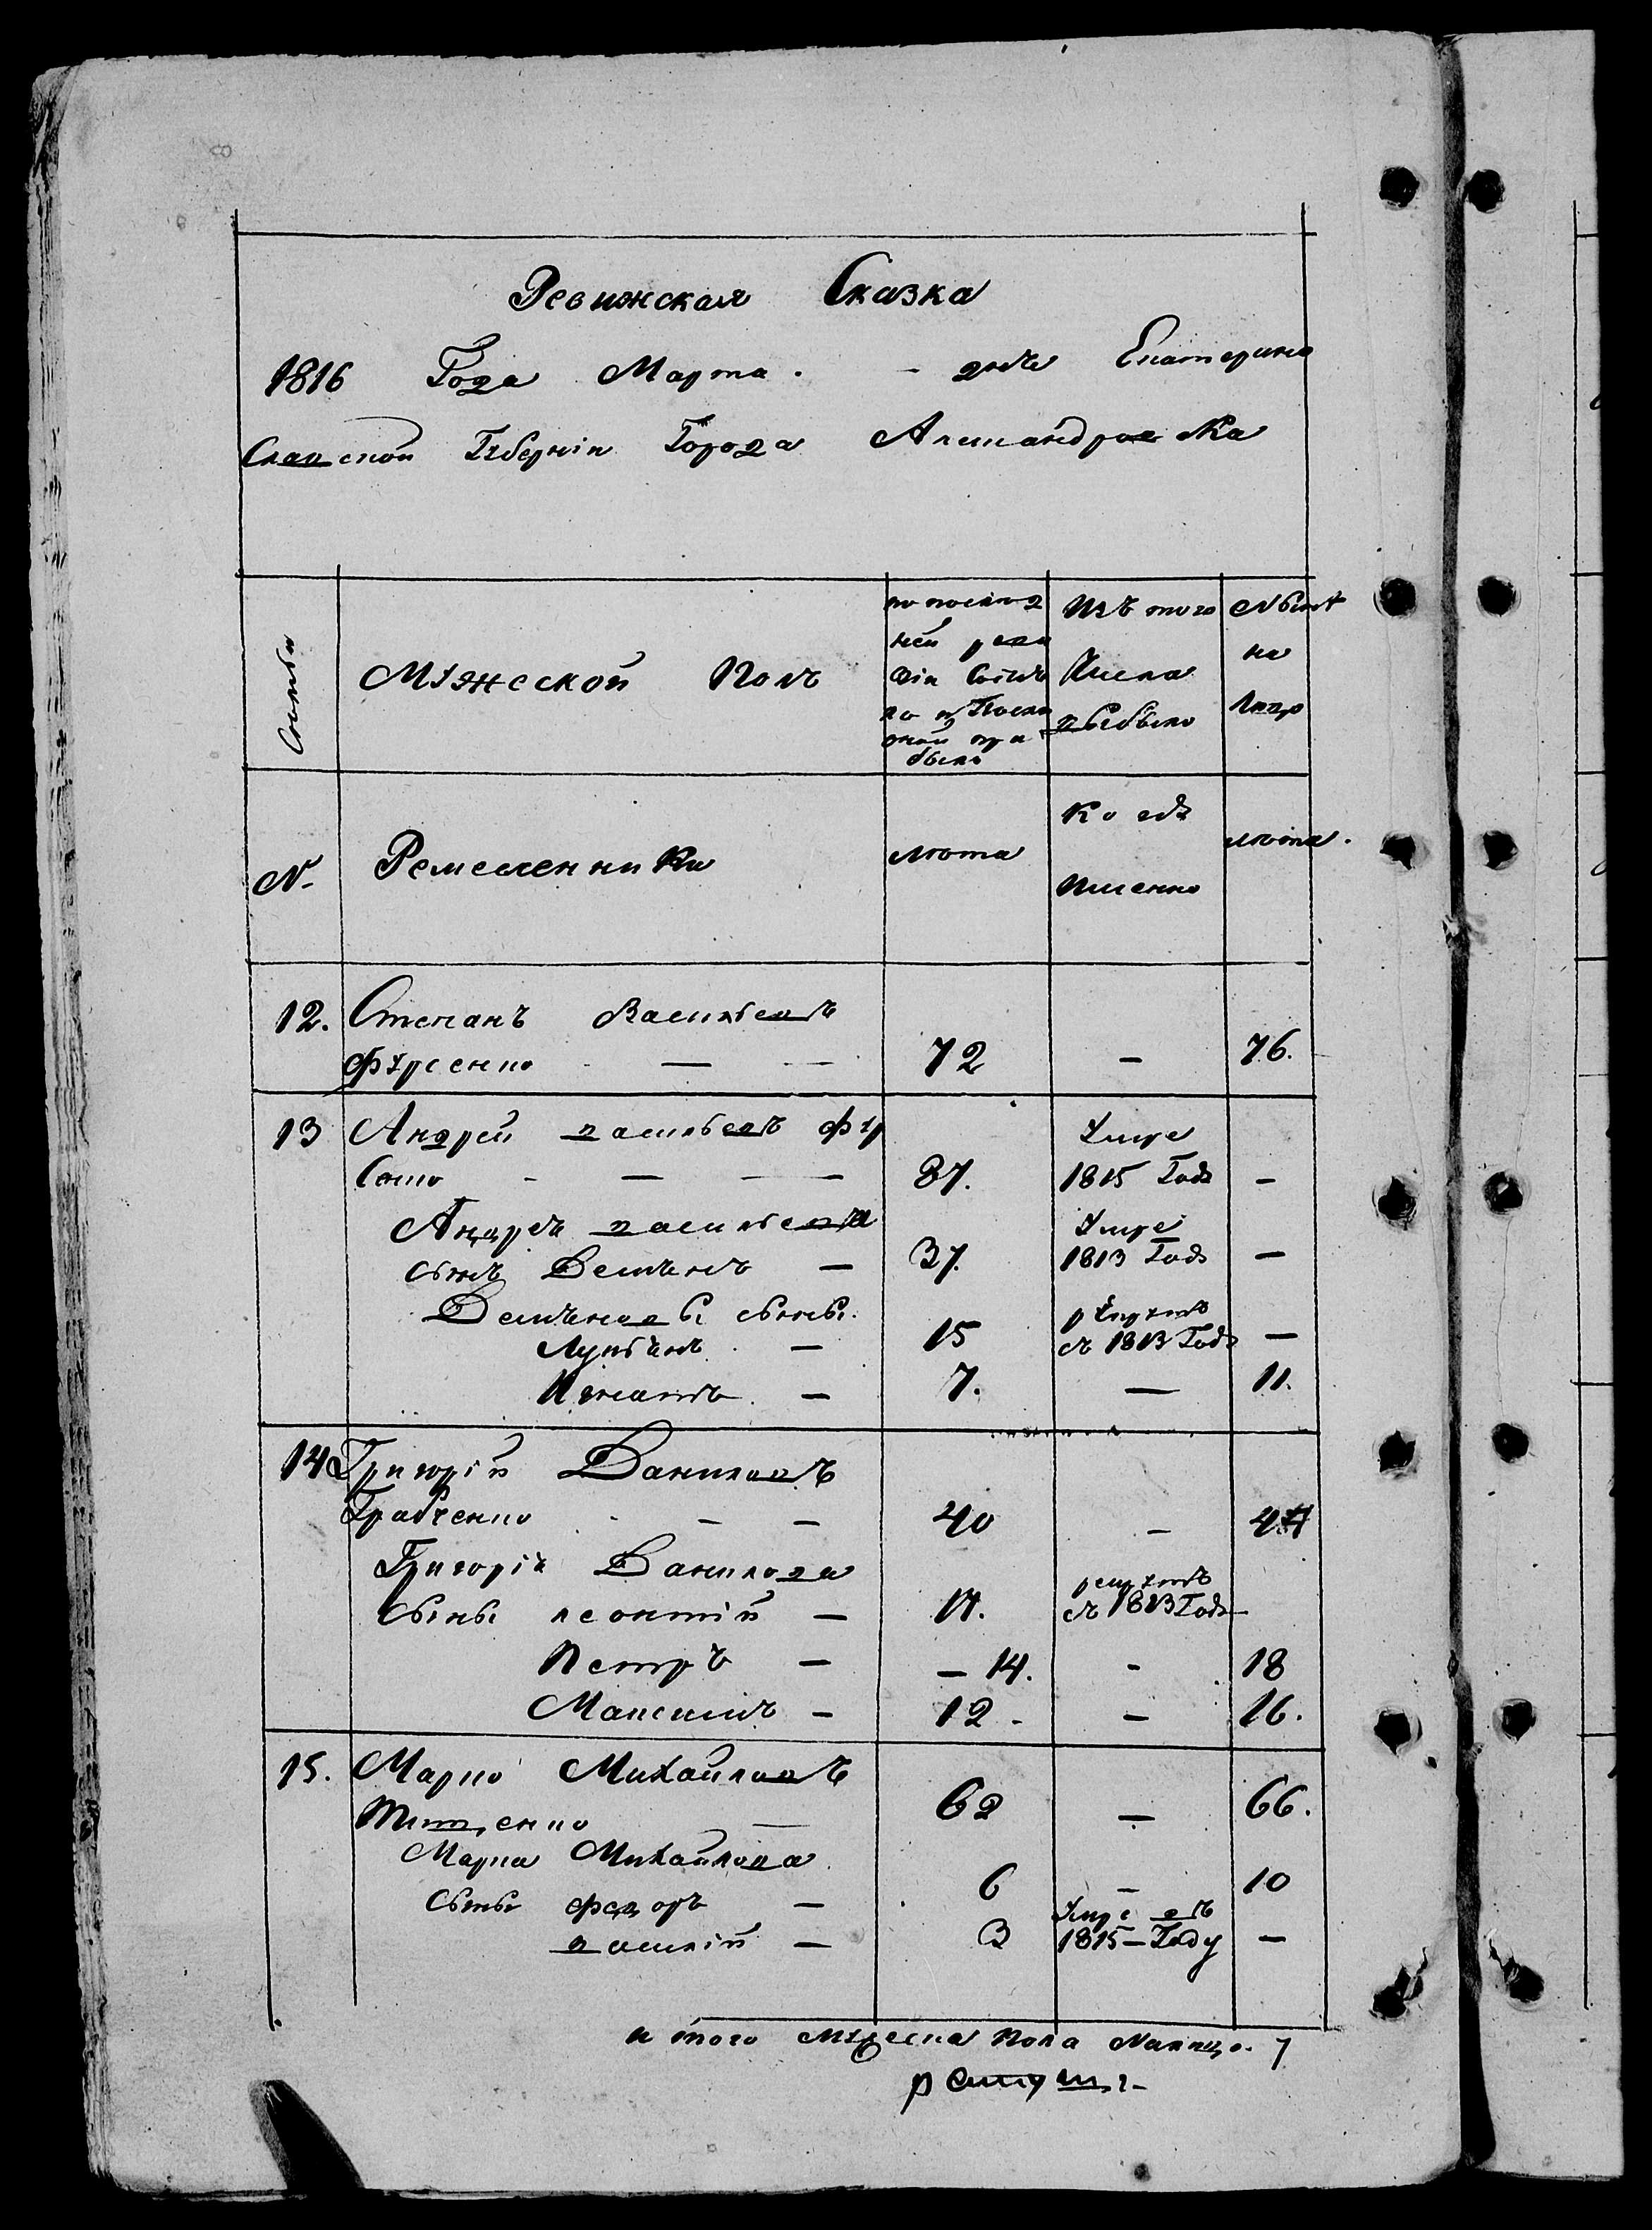 Ревижская Сказка
1816 Года Марта. - дня Екатерино
Славской Губерніи Города Александровска
Семьи
Мужеской Полъ
по послед
ней реви
зіи Состоя
ло и После
оной при
было
Изъ того
Числа
выбыло
Ныне
на
Лицо
№
Ремесленники
лѣта
Когда
Именно
лѣта.
12. Степанъ Васильевъ
Фурсенко — — 72 — 76.
13 Андрей васильевъ Фур
Сенко - — — — 37. Умре 1815 Года —
Андрея васильева
сынъ Демьянъ — 37. Умре 1813 Года —
Демьяновы сыны
Лукьянъ — 15 рекрутъ съ 1813 Года —
Игнатъ — 7. — 11.
14 Григорій Даниловъ
Грабченко - — — 40 — 44
Григорія Данилова
Сыны леонтій — 17. рекрутъ съ 1813 Года —
Петръ — — 14. - 18
Максимъ — 12 - — 16.
15. Марко Михайловъ
Тищенко — 62 — 66.
Марка Михайлова
Сыны Федоръ — 6 — 10
василій — 3 Умре въ 1815 — Году —
итого Мужеска Пола Налицо. 7